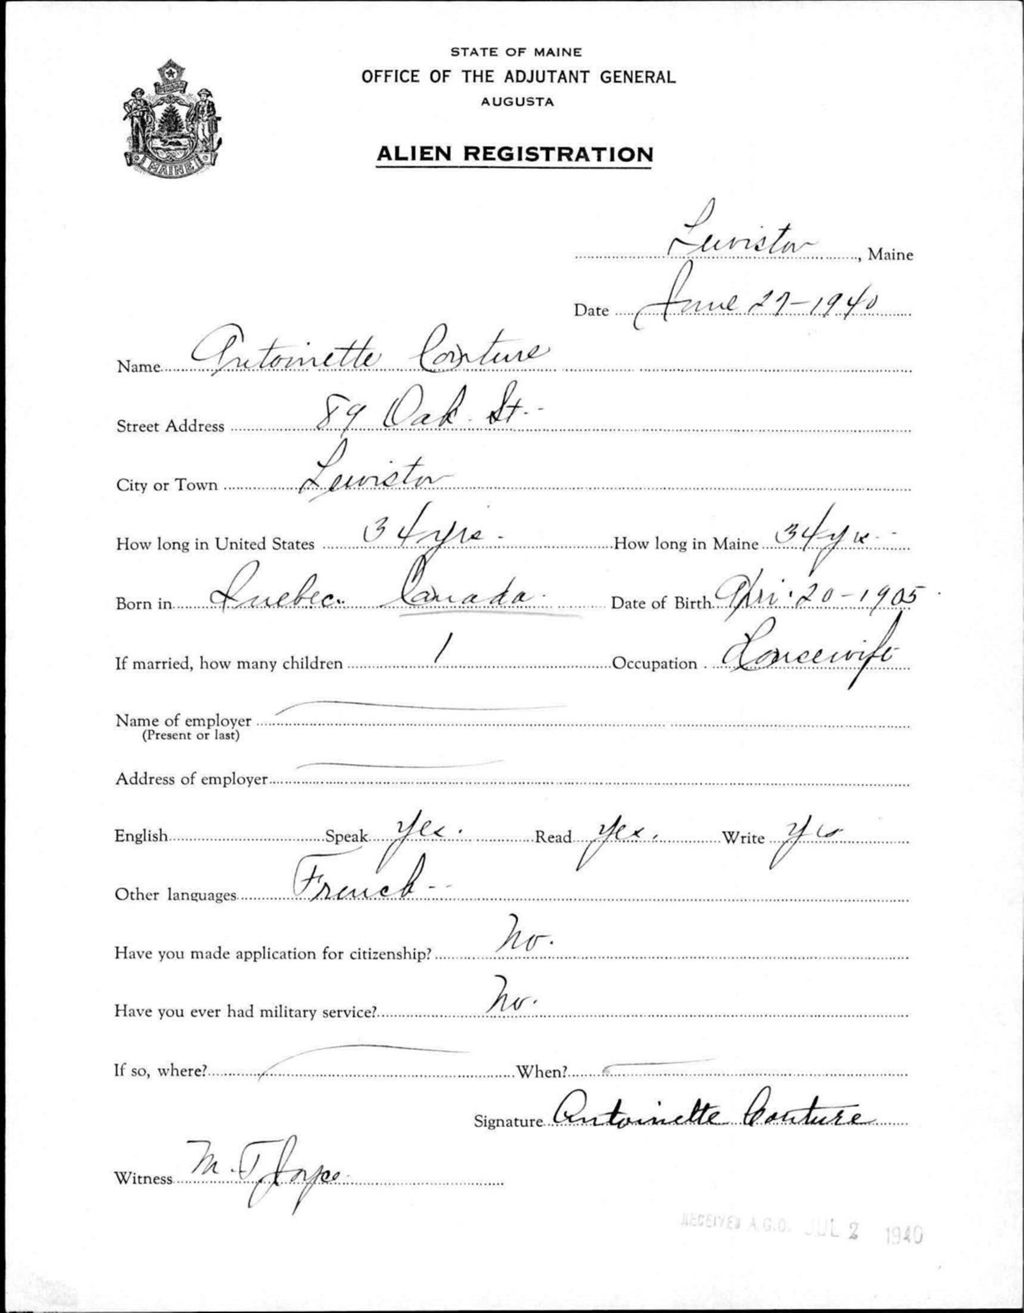 STATE OF MAINE
OFFICE OF THE ADJUTANT GENERAL
AUGUSTA
ALIEN REGISTRATION
MAINE
Lewiston, Maine
Date June 27-1940
Name Antoinette Couture
Street Address 89 Oak St.
City or Town Lewiston
How long in United States 34 yrs. How long in Maine 34 yrs.
Born in Quebec. Canada. Date of Birth Apri. 20-1905
If married, how many children 1 Occupation Housewife
Name of employer
(Present or last)
Address of employer
English Speak Yes. Read Yes. Write Yes
Other languages French
Have you made application for citizenship? No.
Have you ever had military service? No.
If so, where? When?
Signature Antoinette Couture
Witness M. T. Joyce
RECEIVED A.G.O. JUL 2 1940